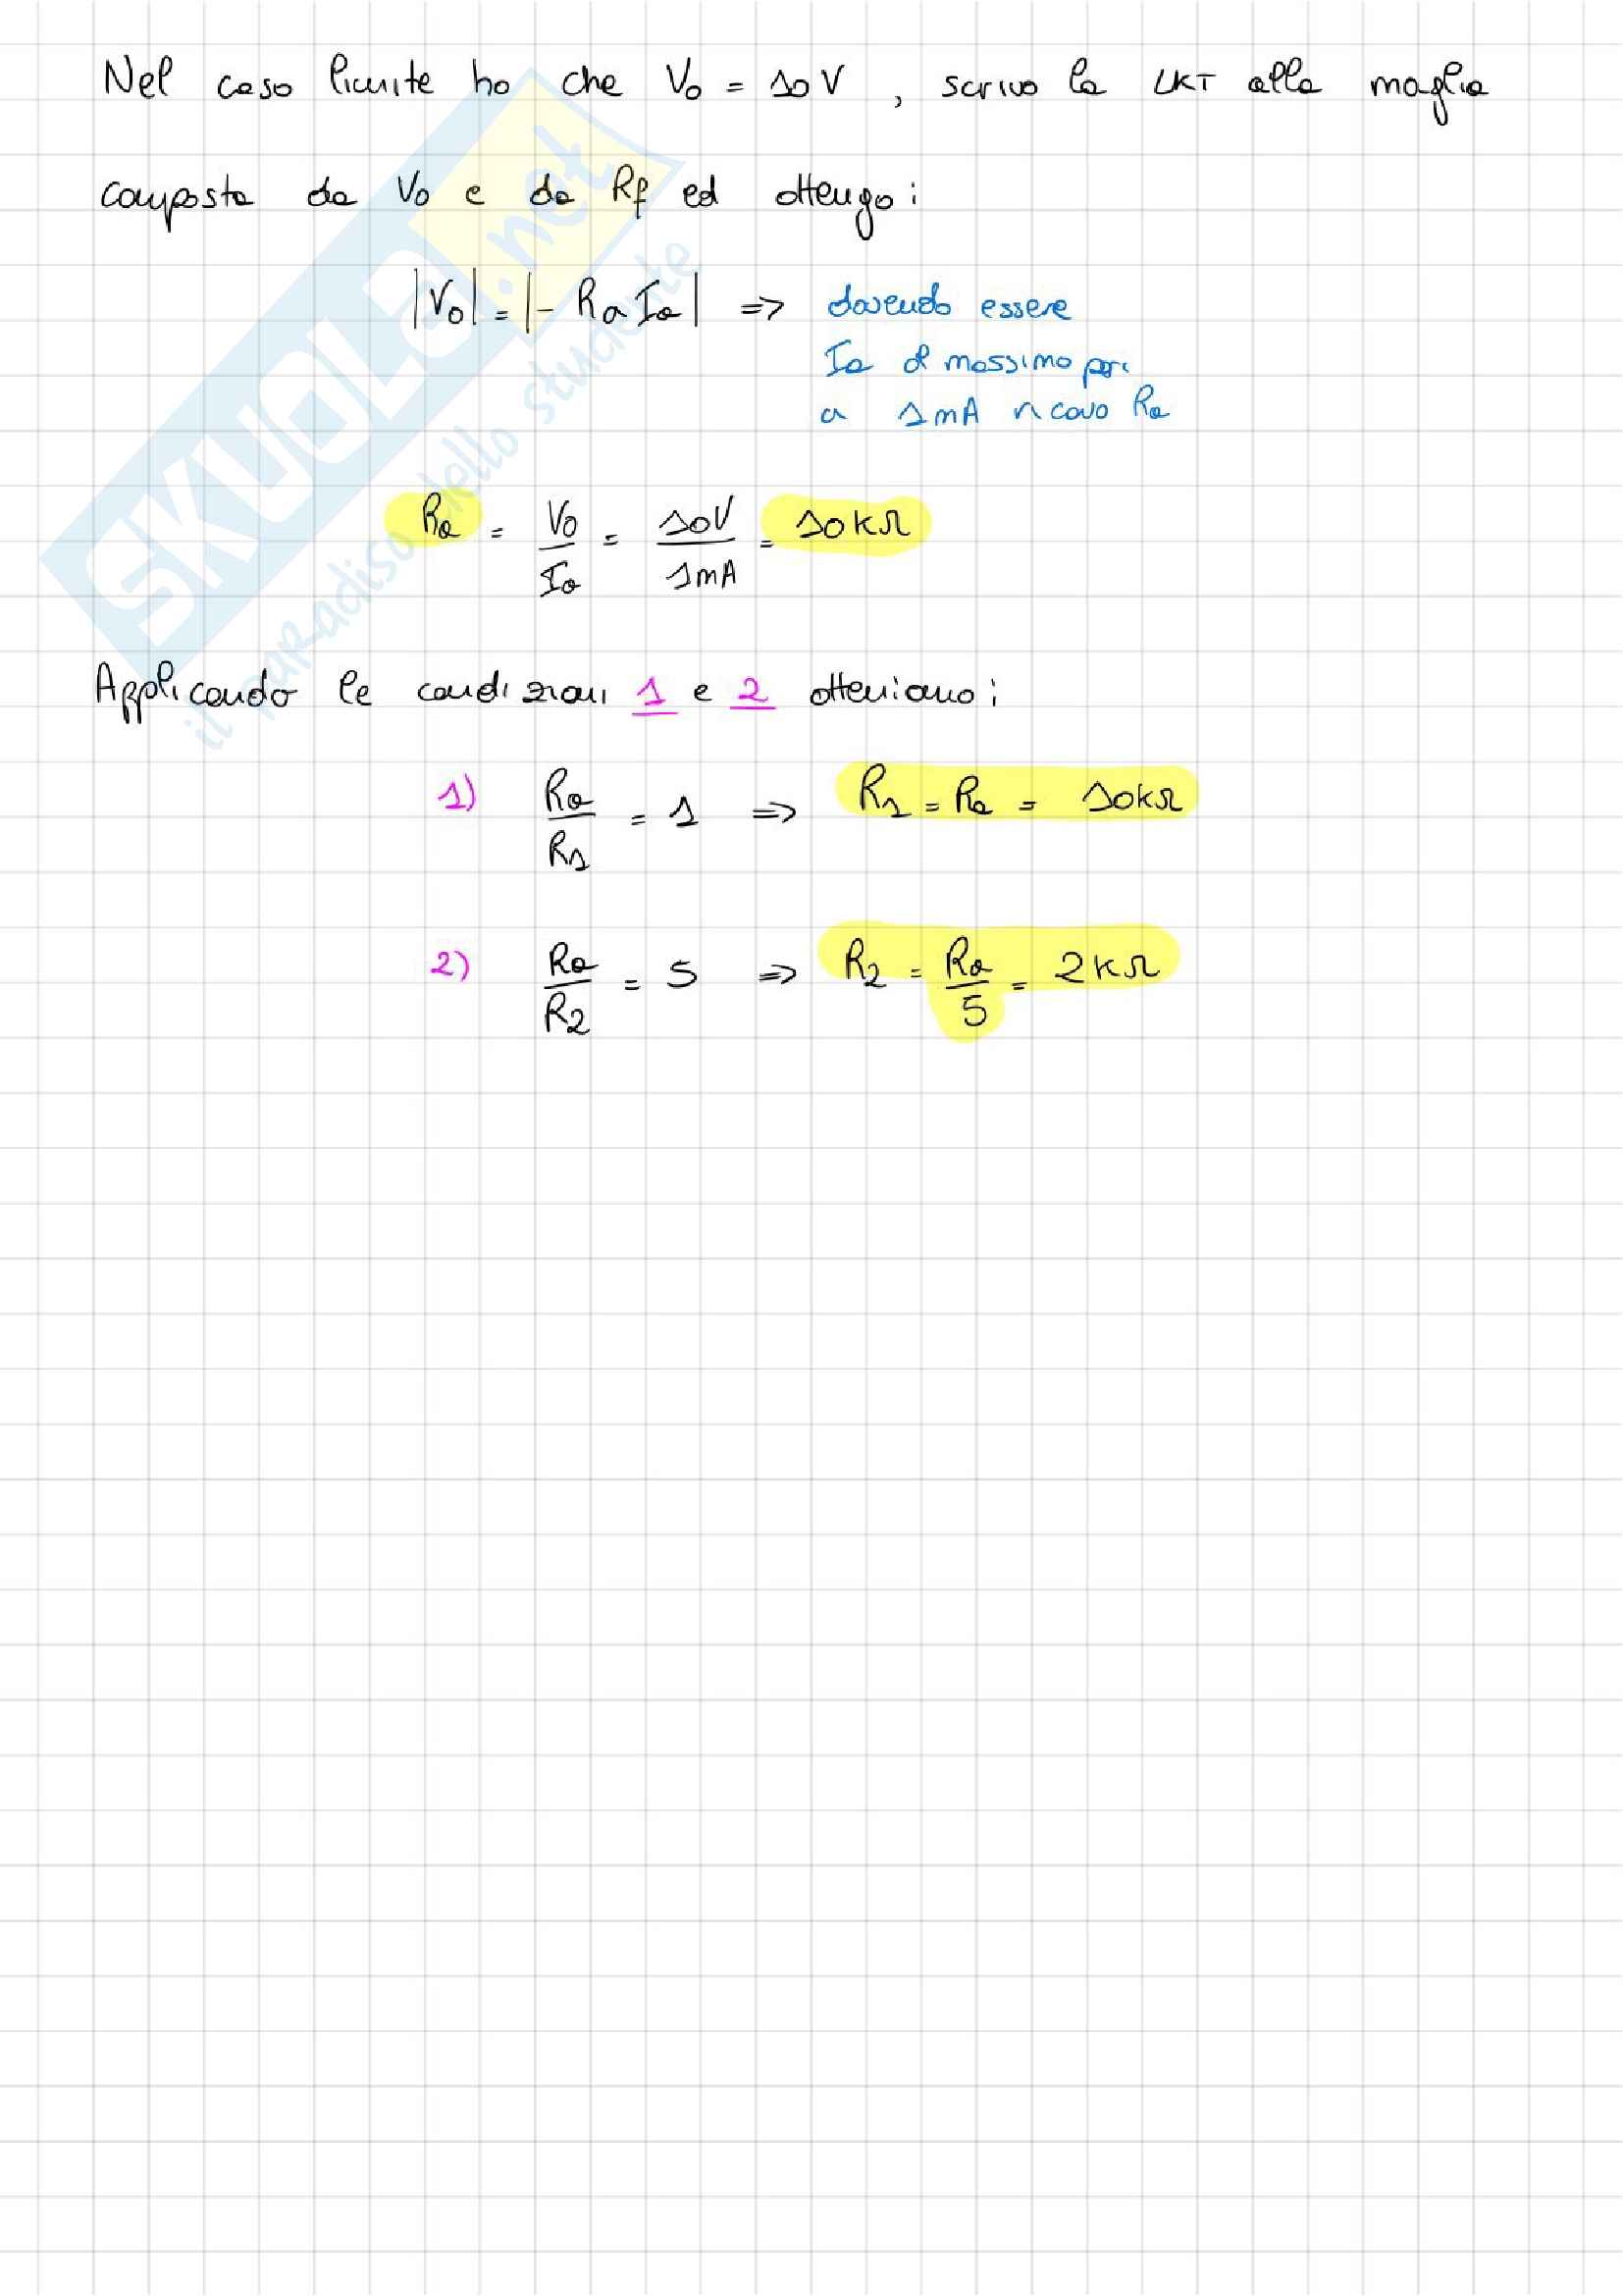 Nel caso limite ho che V₀ = 10V, scrivo la LKT alla maglia
composta da V₀ e da Rf ed ottengo:
|V₀| = |- Ra Ia| => dovendo essere
Ia al massimo pari
a 1mA ricavo Ra
Ra = V₀/Ia = 10V/1mA = 10kΩ
Applicando le condizioni 1 e 2 otteniamo:
1) Ra/R1 = 1 => R1 = Ra = 10kΩ
2) Ra/R2 = 5 => R2 = Ra/5 = 2kΩ
SKUOLA.net
il paradiso dello studente